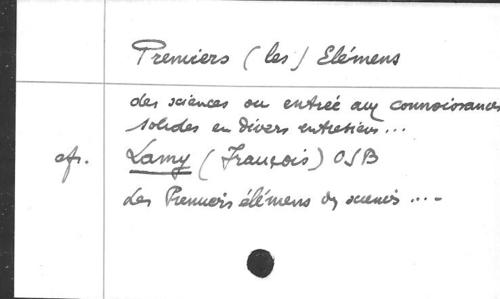 Premiers (les) Elémens
des sciences ou entrée aux connoissances
solides en divers entretiens...
cfr. Lamy (François) OSB
Les Premiers élémens des sciences ....